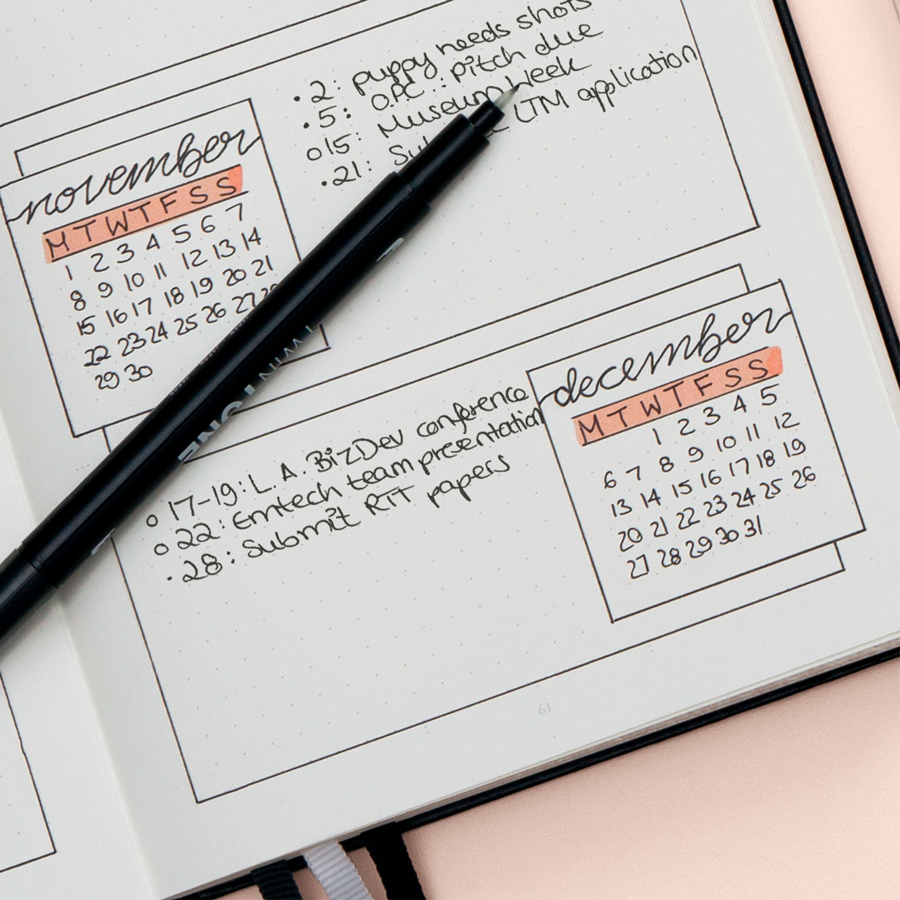 • 2: puppy needs shots
• 5: O.P.C.: pitch due
o15: Museum Week
•21: LTM application
november
M T W T F S S
1 2 3 4 5 6 7
8 9 10 11 12 13 14
15 16 17 18 19 20 21
22 23 24 25 26 27 28
29 30
december
M T W T F S S
1 2 3 4 5
6 7 8 9 10 11 12
13 14 15 16 17 18 19
20 21 22 23 24 25 26
27 28 29 30 31
o 17-19: L.A. BizDev conference
o 22: Emtech team presentation
• 28: Submit RTT papers
TWIN
61